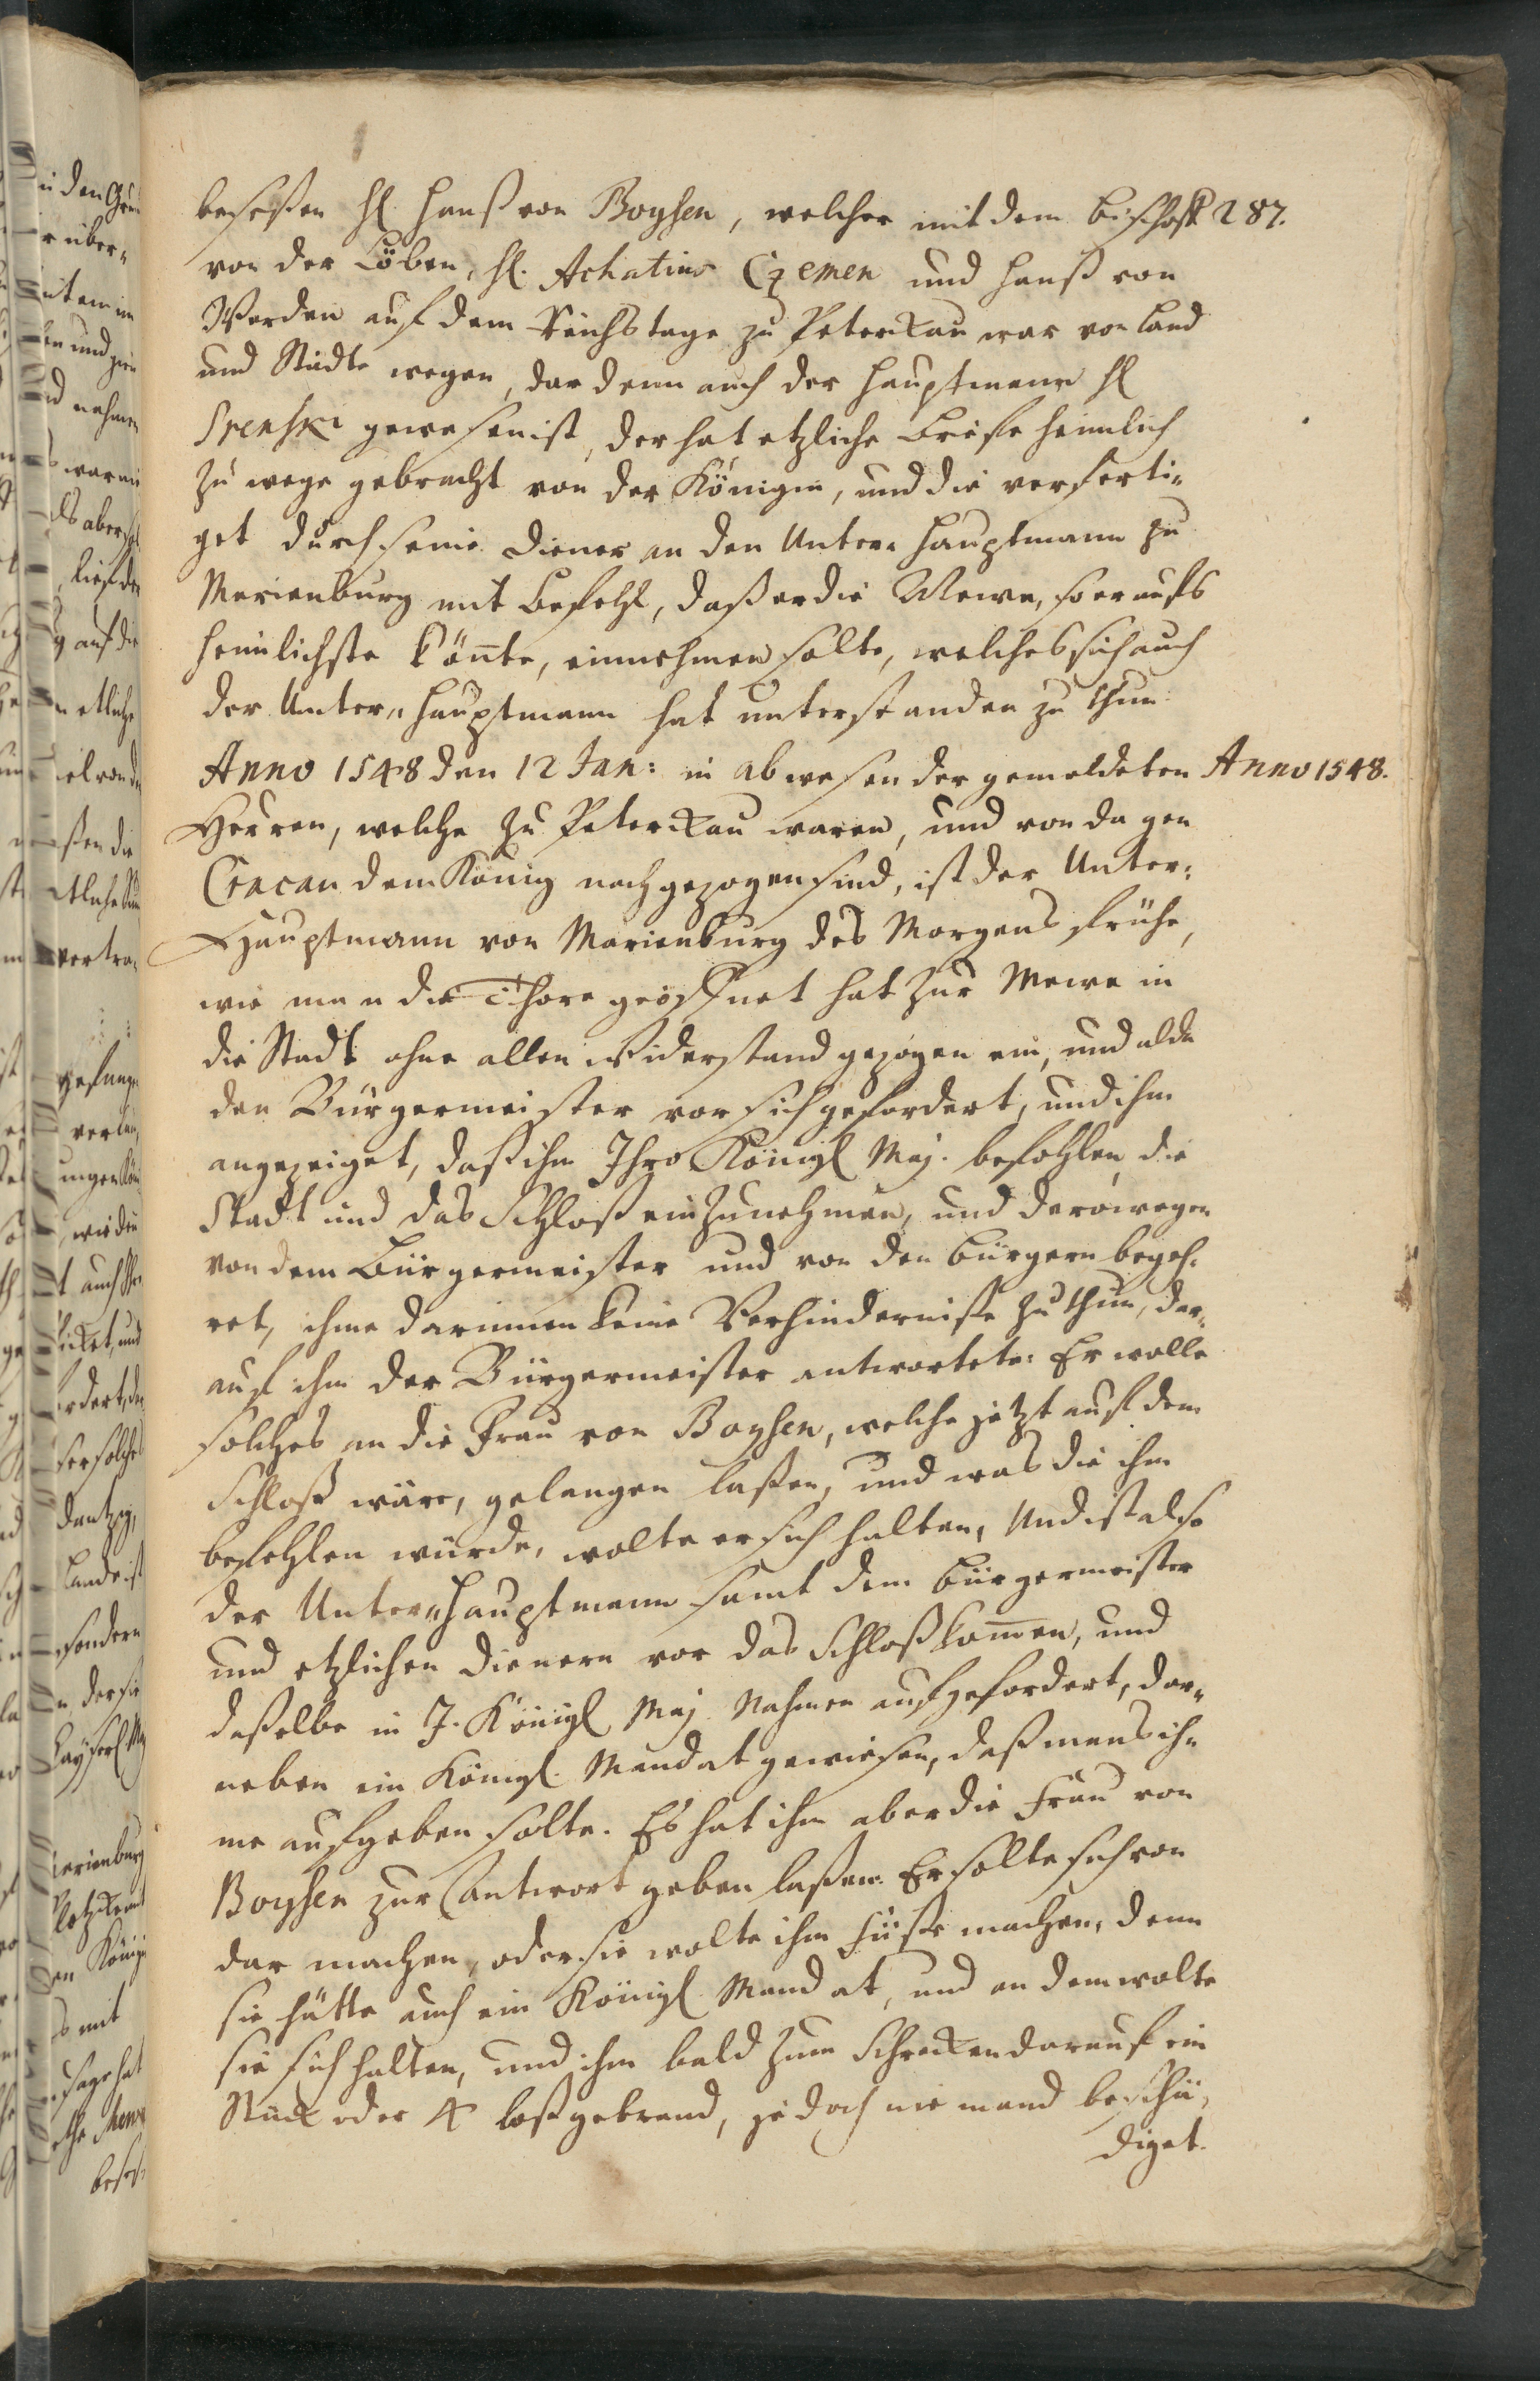 287.
beseßen H. Hanß von Boysen, welcher mit dem Bischoff
von der Löben, H. Achatius Czemen und Hanß von
Werden auf dem Reichstage zu Peterkau war von Land
und Städte wegen, dar denn auch der Hauptmann H.
Srenski gewesen ist, der hat etzliche Briefe heimlich
zu wege gebracht von der Königin, und die verferti=
get durch seine Diener an den Unter=Hauptmann zu
Marienburg mit Befehl, daß er die Mewe, so er aufs
heimlichste könte, einnehmen solte, welches sich auch
der Unter=Hauptmann hat unterstanden zu thun.
Anno 1548.
Anno 1548 den 12 Jan: in abwesen der gemeldeten
Herren, welche zu Peterkau waren, und von da gen
Cracau dem König nachgezogen sind, ist der Unter=
Hauptmann von Marienburg des Morgens frühe,
wie man die Thore geöffnet hat zur Mewe in
die Stadt ohne allen Widerstand gezogen ein, und alda
den Bürgermeister vor sich gefordert, und ihm
angezeiget, daß ihm Ihro Königl. Maj. befohlen die
Stadt und das Schloß einzunehmen, und derowegen
von dem Bürgermeister und von den Bürgern begeh=
ret, ihme darinnen keine Verhinderniße zu thun, dar=
auf ihm der Bürgermeister antwortete: Er wolle
solches an die Frau von Boysen, welche jetzt auf dem
Schloß wäre, gelangen laßen, und was die ihm
befehlen würde, wolte er sich halten, Und ist also
der Unter=Hauptmann samt dem Bürgermeister
und etzlichen Dienern vor das Schloß kommen, und
daßelbe in J. Königl. Maj. Nahmen aufgefordert, dar=
neben ein Königl. Mandat gewiesen, daß mans ih=
me aufgeben solte. Es hat ihm aber die Frau von
Boysen zur Antwort geben laßen: Er sollte sich von
dar machen, oder sie wolte ihm Füße machen, denn
sie hätte auch ein Königl. Mandat, und an dem wolte
sie sich halten, und ihm bald zum Schrecken darauf ein
Stück oder 4 loßgebrand, jedoch niemand beschä=
diget.